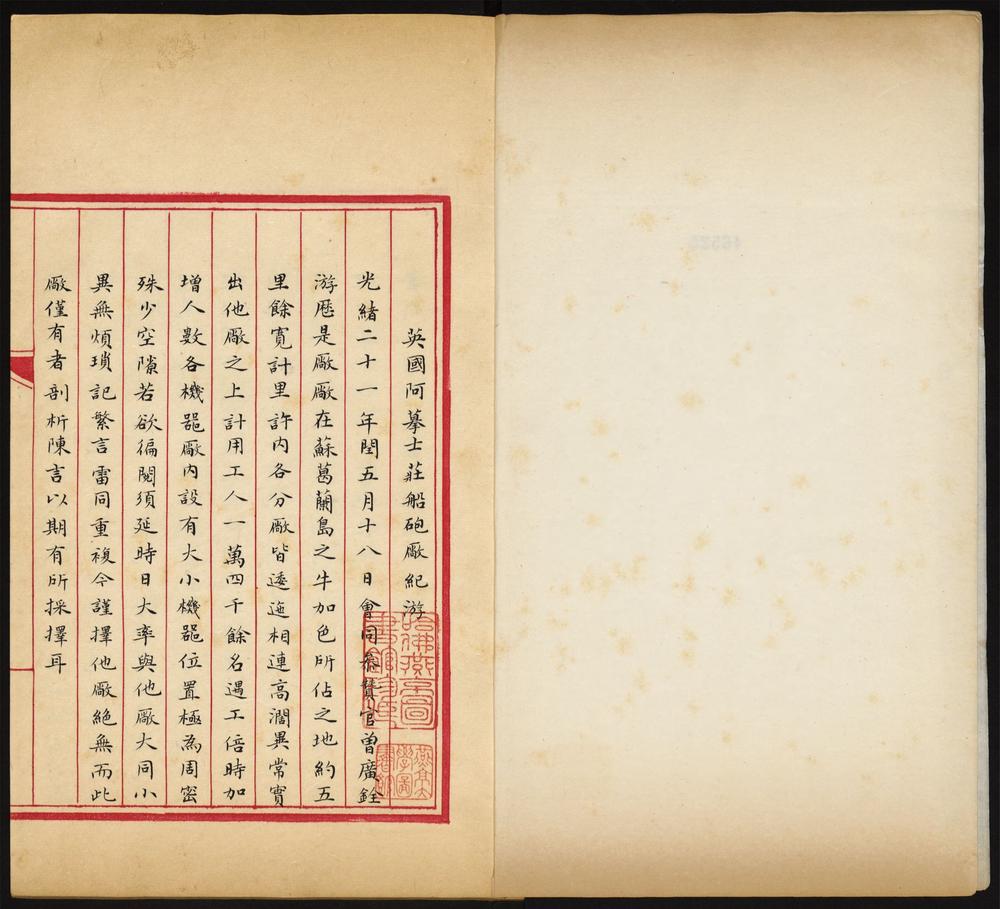 英國阿摹士莊船砲廠紀游
光緒二十一年閏五月十八日會同參贊官曾廣銓
游歷是廠廠在蘇葛蘭島之牛加色所佔之地約五
里餘寬計里許內各分廠皆逶迤相連高濶異常實
出他廠之上計用工人一萬四千餘名遇工倍時加
增人數各機器廠內設有大小機器位置極為周密
殊少空隙若欲徧閱須延時日大率與他廠大同小
異無煩瑣記繁言雷同重複今謹擇他廠絕無而此
廠僅有者剖析陳言以期有所採擇耳
哈佛燕京圖
書館珍藏
燕京大
學圖
書館